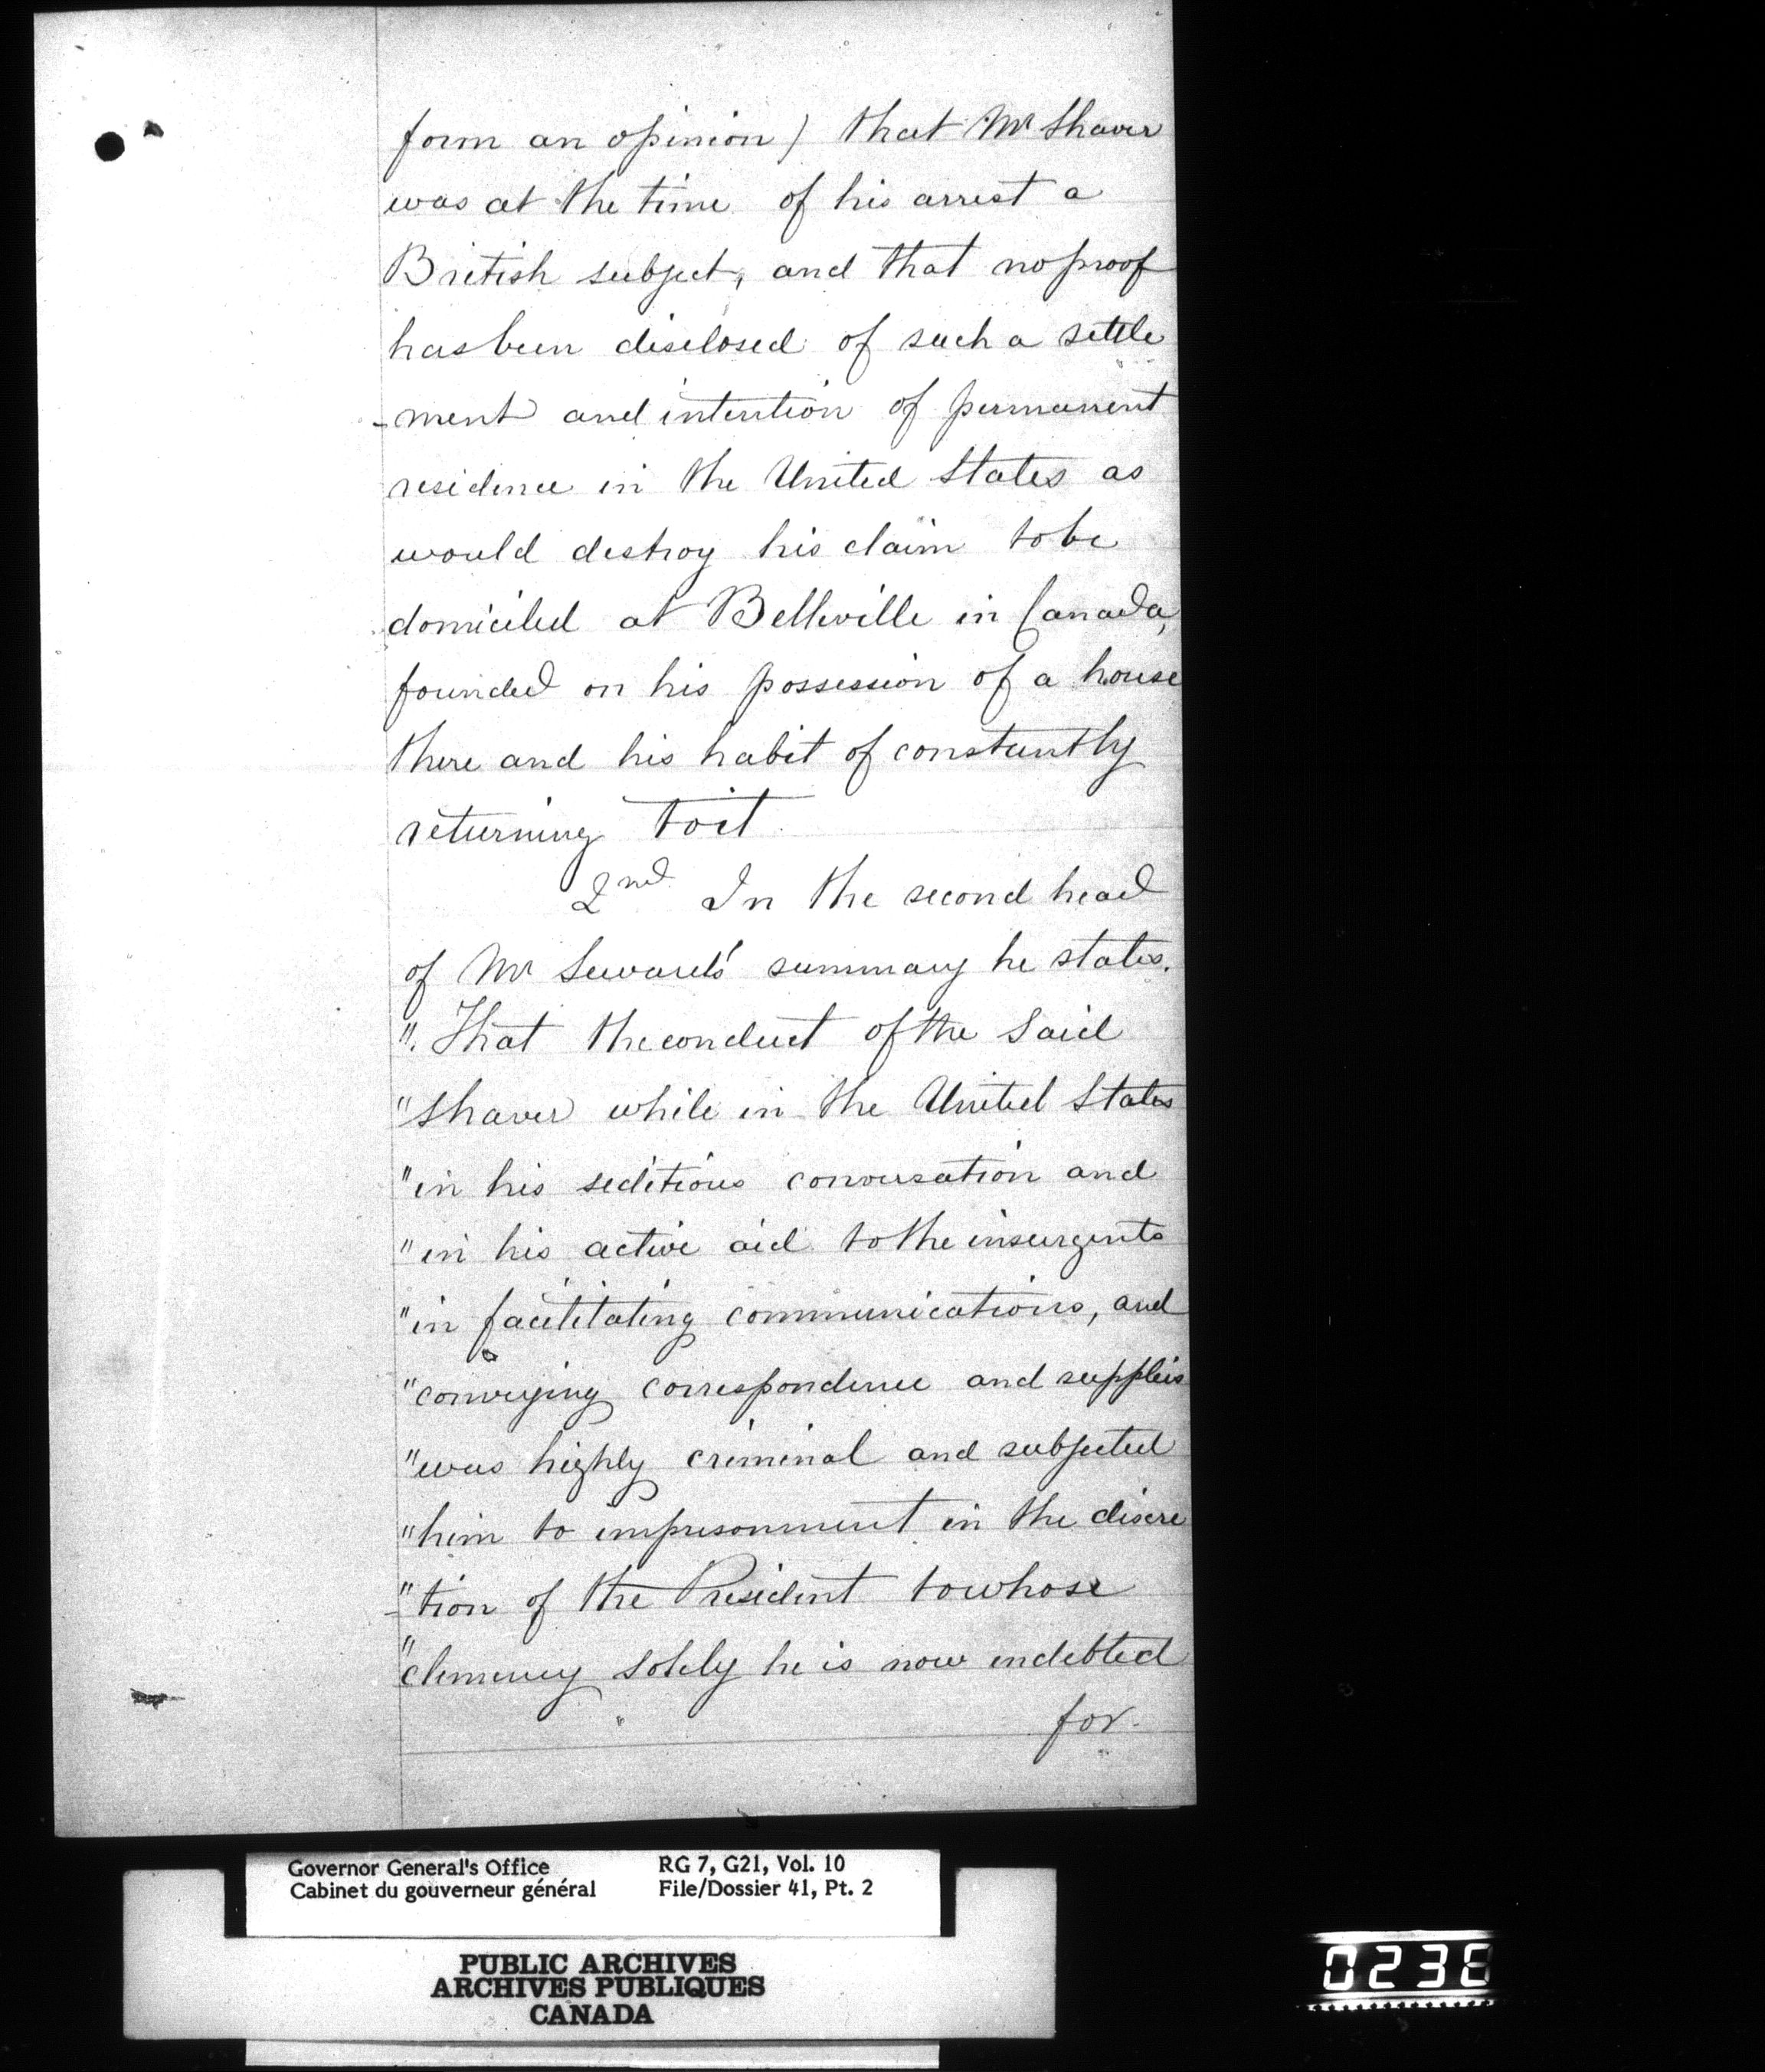 form an opinion) that Mr Shaver
was at the time of his arrest a
British subject, and that no proof
has been disclosed of such a settle
-ment and intention of permanent
residence in the United States as
would destroy his claim to be
domiciled at Belleville in Canada,
founded on his possession of a house
there and his habit of constantly
returning to it
2nd In the second head
of Mr Seward's summary he states.
". That the conduct of the said
"Shaver while in the United States
"in his seditious conversation and
"in his active aid to the insurgents
"in facilitating communications, and
"conveying correspondence and supplies
"was highly criminal and subjected
"him to imprisonment in the discre
-"tion of the President to whose
"clemency solely he is now indebted
for
Governor General's Office RG 7, G21, Vol. 10
Cabinet du gouverneur général File/Dossier 41, Pt. 2
PUBLIC ARCHIVES
ARCHIVES PUBLIQUES
CANADA